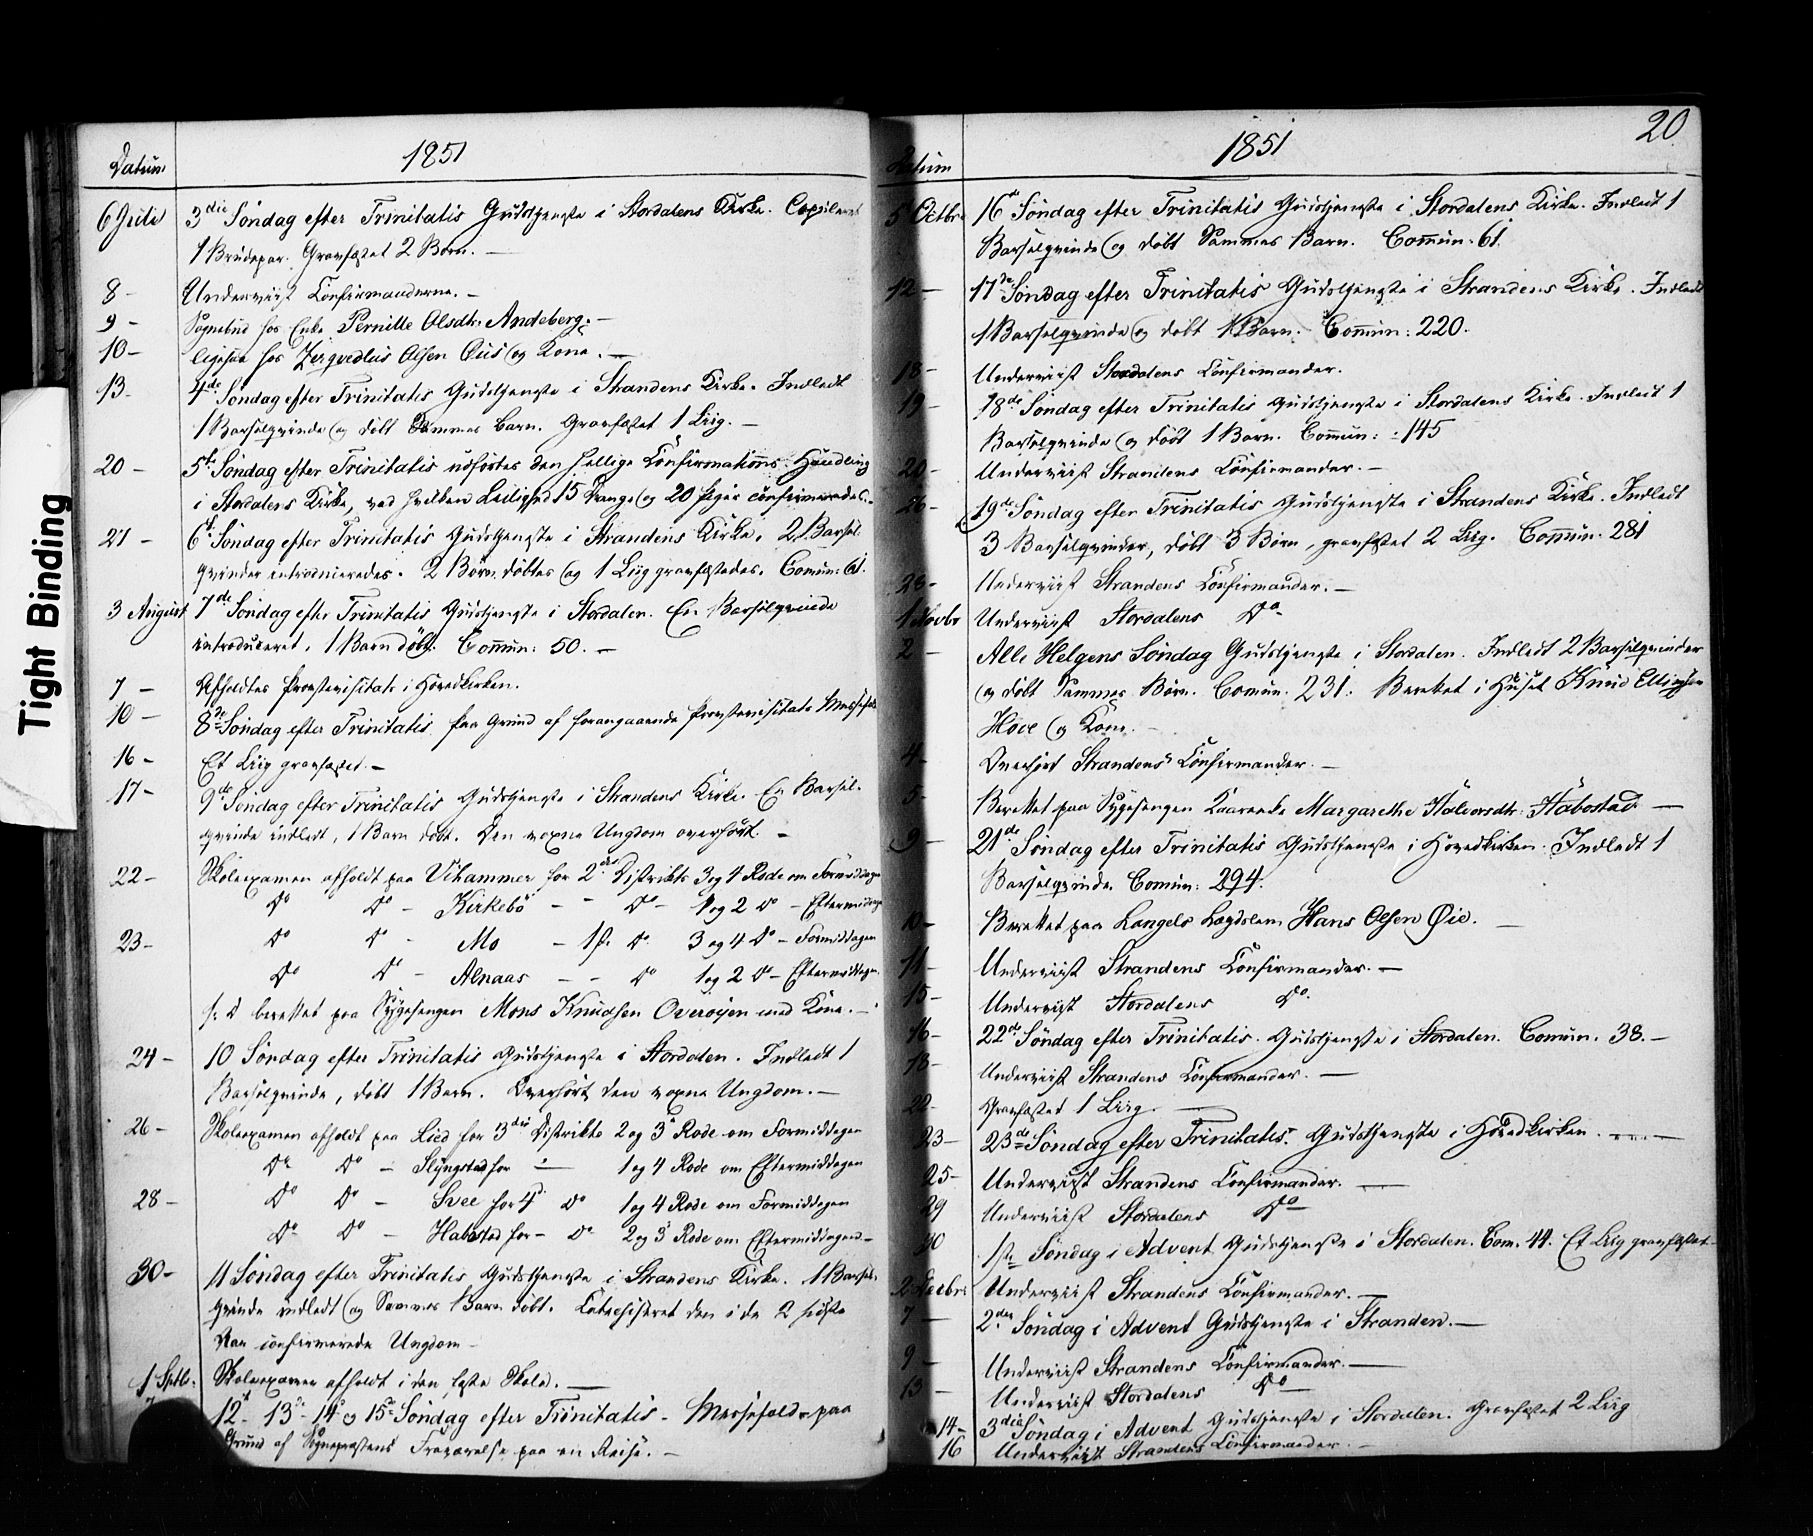 Tight Binding
Datum 1851
6 Juli 3die Søndag efter Trinitatis Gudstjeneste i Stordalens Kirke. Copuleret
1 Brudepar. Gravfæstet 2 Børn. —
8 - Underviist Confirmanderne. —
9 - Sognebud hos Enke Pernille Olsdtr. Andeberg. —
10 - Ligesaa hos Olsen Aus og Kone. —
13 - 4de Søndag efter Trinitatis Gudstjeneste i Strandens Kirke. Indledt
1 Barselqvinde og døbt Sammes Barn. Gravfæstet 1 Liig. —
20 - 5te Søndag efter Trinitatis udførtes den hellige Confirmations-Handling
i Stordalens Kirke, ved hvilken Leilighed 15 Drenge og 20 Piger confirmeredes. -
27 - 6te Søndag efter Trinitatis Gudstjeneste i Strandens Kirke. 2 Barsel-
qvinder introduceredes. 2 Børn døbtes og 1 Liig gravfæstedes. Comun: 61.
3 August 7de Søndag efter Trinitatis Gudstjeneste i Stordalen. En Barselqvinde
introduceret, 1 Barn døbt. Commun: 50. —
7 - Afholdtes Provstevisitats i Hovedkirken.
10 - 8de Søndag efter Trinitatis paa Grund af forangaaende Provstevisitats Messefald
16 - Et Liig gravfæstet. —
17 - 9de Søndag efter Trinitatis Gudstjeneste i Strandens Kirke. En Barsel-
qvinde indledt, 1 Barn døbt. Den voxne Ungdom overhørt. —
22 - Skoleexamen afholdt paa Vihammer for 2det Distrikts 3 og 4 Rode om Formiddagen
Do Do - Kirkebø - - Do - 1 og 2 Do - Eftermiddagen
23 - Do Do - Mo - 1st. Do 3 og 4 Do - Formiddagen
Do Do - Alnaas - - Do 1 og 2 Do - Eftermiddagen
s. D berettet paa Sygesengen Mons Knudsen Overøyen med Kone. —
24 - 10 Søndag efter Trinitatis Gudstjeneste i Stordalen. Indledt 1
Barselqvinde, døbt 1 Barn. Overhørt den voxne Ungdom. —
26 - Skoleexamen afholdt paa Lied for 3die Distrikts 2 og 3 Rode om Formiddagen
Do Do - Slyngstad for - 1 og 4 Rode om Eftermiddagen
28 - Do Do - Svee for 4d Do 1 og 4 Rode om Formiddagen
Do Do - Habostad for - Do 2 og 3 Rode om Eftermiddagen -
30 - 11 Søndag efter Trinitatis Gudstjeneste i Strandens Kirke. 1 Barsel-
qvinde indledt og Sammes Barn døbt. Catechiseret den i de 2 sidste
Aar confirmerede Ungdom -
1 Septbr. Skoleexamen afholdt i den faste Skole. —
12t - 13d - 14d og 15d Søndag efter Trinitatis - Messefald paa
Grund af Sognepræstens Fraværelse paa en Reise. —
20
Datum 1851
5 Octbr. 16de Søndag efter Trinitatis Gudstjeneste i Stordalens Kirke. Indledt 1
Barselqvinde og døbt Sammes Barn. Commun. 61.
12 - 17de Søndag efter Trinitatis Gudstjeneste i Strandens Kirke. Indledt
1 Barselqvinde og døbt 1 Barn. Commun: 220.
18 - Underviist Stordalens Confirmander.
19 - 18de Søndag efter Trinitatis Gudstjeneste i Stordalens Kirke. Indledt 1
Barselqvinde og døbt 1 Barn. Commun: - 145
20 - Underviist Strandens Confirmander. —
26 - 19de Søndag efter Trinitatis Gudstjeneste i Strandens Kirke. Indledt
3 Barselqvinder, døbt 3 Børn, gravfæstet 2 Liig. Commun. 281
28 - Underviist Strandens Confirmander. —
1 Novbr Underviist Stordalens Do
2 - Alle Helgens Søndag Gudstjeneste i Stordalen. Indledt 2 Barselqvinder
og døbt Sammes Børn. Comun. 231. Berettet i Huset Knud Ellingsen
Hove og Kone. -
4 - Overhørt Strandens Confirmander. —
5 - Berettet paa Sygesengen Margarethe Halvorsdtr. Habostad. —
9 - 21de Søndag efter Trinitatis Gudstjeneste i Hovedkirken. Indledt 1
Barselqvinde. Comun: 294.
10 - Berettet paa Langelo Lægdslem Hans Olsen Øie. —
11 - Underviist Strandens Confirmander. —
15 - Underviist Stordalens Do.
16 - 22de Søndag efter Trinitatis. Gudstjeneste i Stordalen. Comun. 38. —
18 - Underviist Strandens Confirmander. —
22 - Gravfæstet 1 Liig. —
23 - 23de Søndag efter Trinitatis. Gudstjeneste i Hovedkirken. —
25 - Underviist Strandens Confirmander. —
29 Underviist Stordalens Do —
30 1ste Søndag i Advent Gudstjeneste i Stordalen. Com. 44. Et Liig gravfæstet -
2 Decbr. Underviist Strandens Confirmander. —
7 - 2den Søndag i Advent Gudstjeneste i Stranden. —
9 - Underviist Strandens Confirmander. —
13 - Underviist Stordalens Do —
14 - 3die Søndag i Advent Gudstjeneste i Stordalen. Gravfæstet 2 Liig
16 Underviist Strandens Confirmander. —